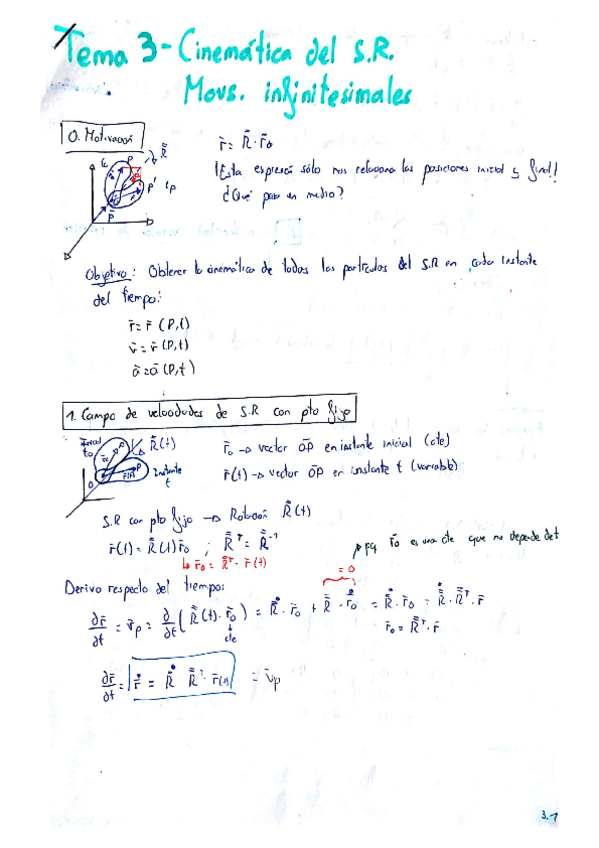 Tema 3- Cinemática del S.R.
Movs. infinitesimales
0. Motivación
r̄ = R̿ · r̄₀
¡Esta expresión sólo nos relaciona las posiciones inicial y final!
¿Qué pasa en medio?
P
P'
Objetivo: Obtener la cinemática de todas las partículas del S.R en cada instante
del tiempo:
r̄ = r̄ (P,t)
v̄ = v̄ (P,t)
ā = ā (P,t)
1. Campo de velocidades de S.R con pto fijo
t₀
R̿(t)
O
Instante
t
r̄₀ → vector ŌP en instante inicial (cte)
r̄(t) → vector ŌP en instante t (variable)
S.R con pto fijo → Rotación R̿(t)
r̄(t) = R̿(t) r̄₀ ; R̿ᵀ = R̿⁻¹
↳ r̄₀ = R̿ᵀ · r̄(t)
pq r̄₀ es una cte que no depende de t
= 0
Derivo respecto del tiempo:
∂r̄/∂t = v̄p = ∂/∂t (R̿(t) · r̄₀) = Ṙ̿ · r̄₀ + R̿ · ṙ̄₀ = Ṙ̿ · r̄₀ = Ṙ̿ · R̿ᵀ · r̄
cte
r̄₀ = R̿ᵀ · r̄
∂r̄/∂t = ṙ̄ = Ṙ̿ R̿ᵀ · r̄(t) = v̄p
3.1